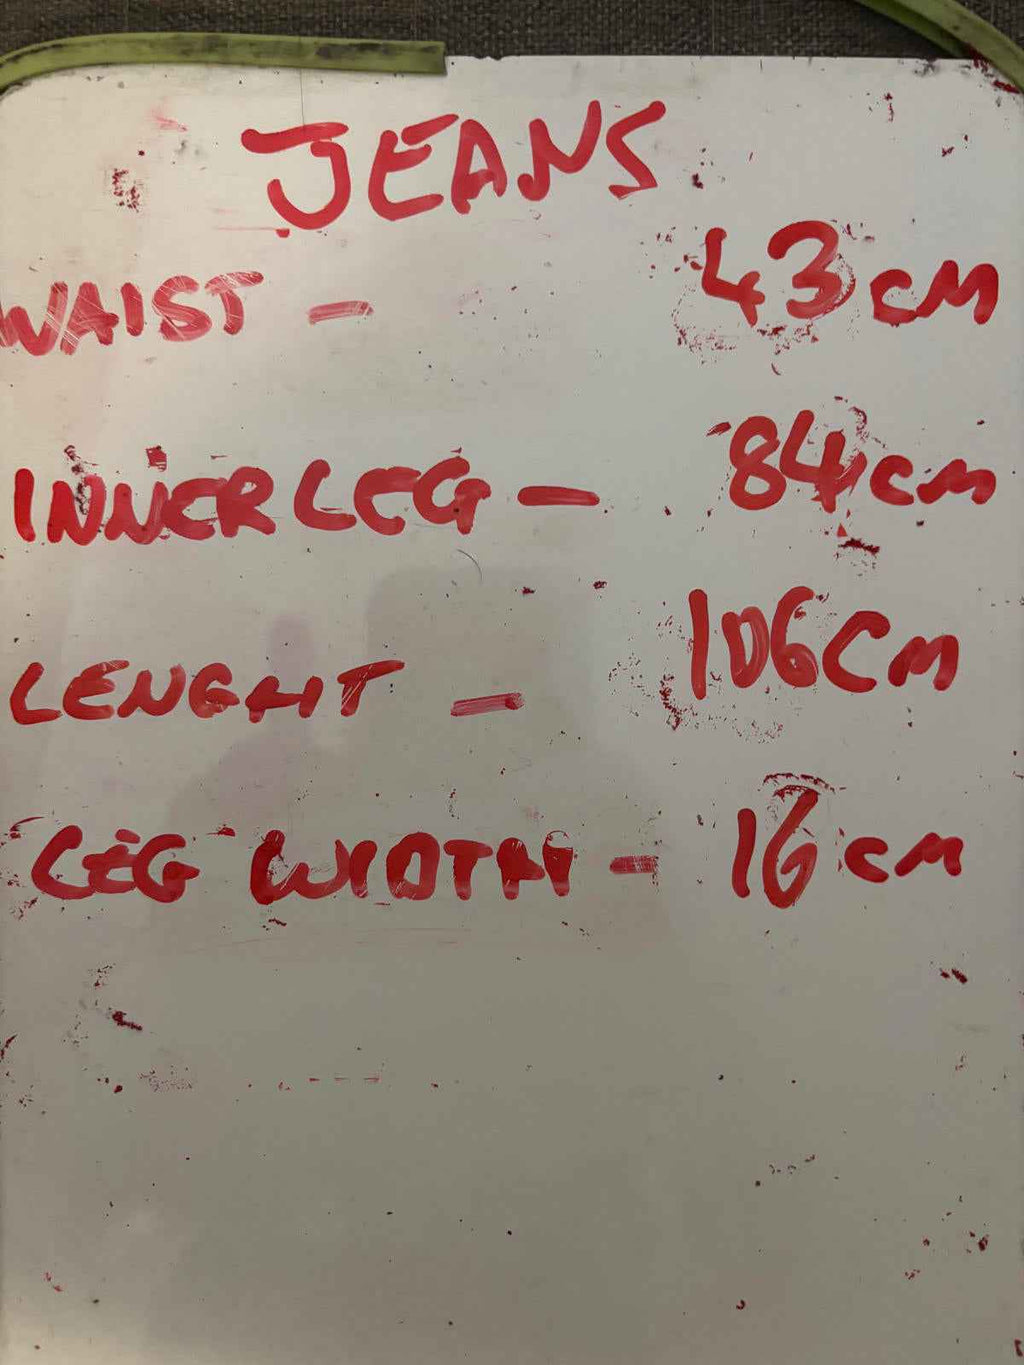 JEANS
WAIST - 43cM
INNER LEG - 84cm
LENGHT - 106cm
LEG WIDTH - 16cm